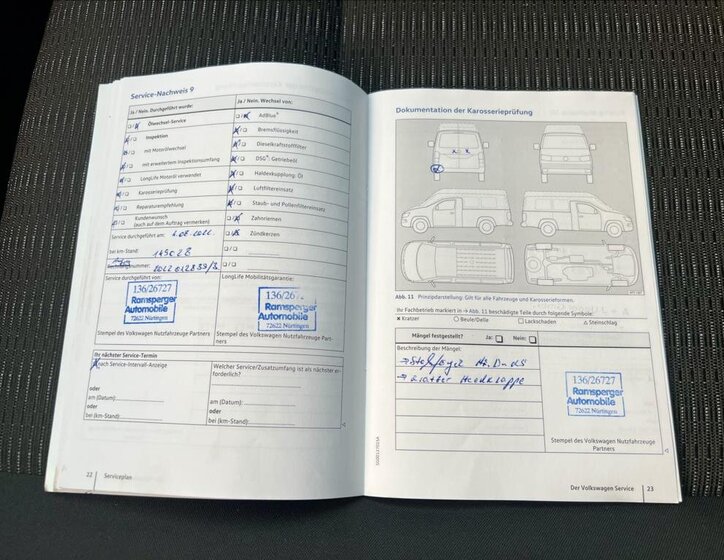 Service-Nachweis 9
Ja / Nein. Durchgeführt wurde:
Ölwechsel-Service
Inspektion
mit Motorölwechsel
mit erweitertem Inspektionsumfang
LongLife Motoröl verwendet
Karosserieprüfung
Reparaturempfehlung
Kundenwunsch
(auch auf dem Auftrag vermerken)
Service durchgeführt am:
bei km-Stand:
nummer:
Service durchgeführt von:
136/26727
Ramsperger
Automobile
72622 Nürtingen
Stempel des Volkswagen Nutzfahrzeuge Partners
Ja / Nein. Wechsel von:
AdBlue®
Bremsflüssigkeit
Dieselkraftstofffilter
DSG®: Getriebeöl
Haldexkupplung: Öl
Luftfiltereinsatz
Staub- und Pollenfiltereinsatz
Zahnriemen
Zündkerzen
LongLife Mobilitätsgarantie:
136/267
Ramsperger
Automobile
72622 Nürtingen
Stempel des Volkswagen Nutzfahrzeuge Part-
ners
Ihr nächster Service-Termin
nach Service-Intervall-Anzeige
oder
am (Datum):
oder
bei (km-Stand):
Welcher Service/Zusatzumfang ist als nächster er-
forderlich?
am (Datum):
oder
bei (km-Stand):
22 Serviceplan
Dokumentation der Karosserieprüfung
Abb. 11 Prinzipdarstellung: Gilt für alle Fahrzeuge und Karosserieformen.
Ihr Fachbetrieb markiert in → Abb. 11 beschädigte Teile durch folgende Symbole:
x Kratzer O Beule/Delle □ Lackschaden △ Steinschlag
Mängel festgestellt? Ja: Nein:
Beschreibung der Mängel:
136/26727
Ramsperger
Automobile
72622 Nürtingen
Stempel des Volkswagen Nutzfahrzeuge
Partners
Der Volkswagen Service 23